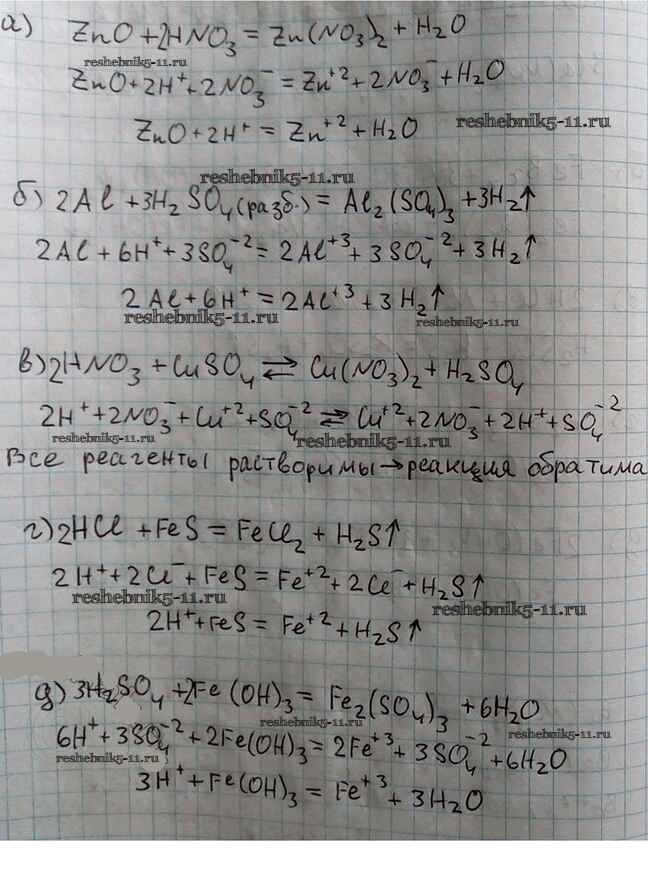 а) ZnO + 2HNO₃ = Zn(NO₃)₂ + H₂O
reshebnik5-11.ru
ZnO + 2H⁺ + 2NO₃⁻ = Zn⁺² + 2NO₃⁻ + H₂O
ZnO + 2H⁺ = Zn⁺² + H₂O
reshebnik5-11.ru
reshebnik5-11.ru
б) 2Al + 3H₂SO₄(разб.) = Al₂(SO₄)₃ + 3H₂↑
2Al + 6H⁺ + 3SO₄⁻² = 2Al⁺³ + 3SO₄⁻² + 3H₂↑
2Al + 6H⁺ = 2Al⁺³ + 3H₂↑
reshebnik5-11.ru reshebnik5-11.ru
в) 2HNO₃ + CuSO₄ ⇄ Cu(NO₃)₂ + H₂SO₄
2H⁺ + 2NO₃⁻ + Cu⁺² + SO₄⁻² ⇄ Cu⁺² + 2NO₃⁻ + 2H⁺ + SO₄⁻²
reshebnik5-11.ru reshebnik5-11.ru
Все реагенты растворимы → реакция обратима
г) 2HCl + FeS = FeCl₂ + H₂S↑
2H⁺ + 2Cl⁻ + FeS = Fe⁺² + 2Cl⁻ + H₂S↑
reshebnik5-11.ru reshebnik5-11.ru
2H⁺ + FeS = Fe⁺² + H₂S↑
д) 3H₂SO₄ + 2Fe(OH)₃ = Fe₂(SO₄)₃ + 6H₂O
reshebnik5-11.ru
6H⁺ + 3SO₄⁻² + 2Fe(OH)₃ = 2Fe⁺³ + 3SO₄⁻² + 6H₂O
reshebnik5-11.ru reshebnik5-11.ru
3H⁺ + Fe(OH)₃ = Fe⁺³ + 3H₂O
reshebnik5-11.ru